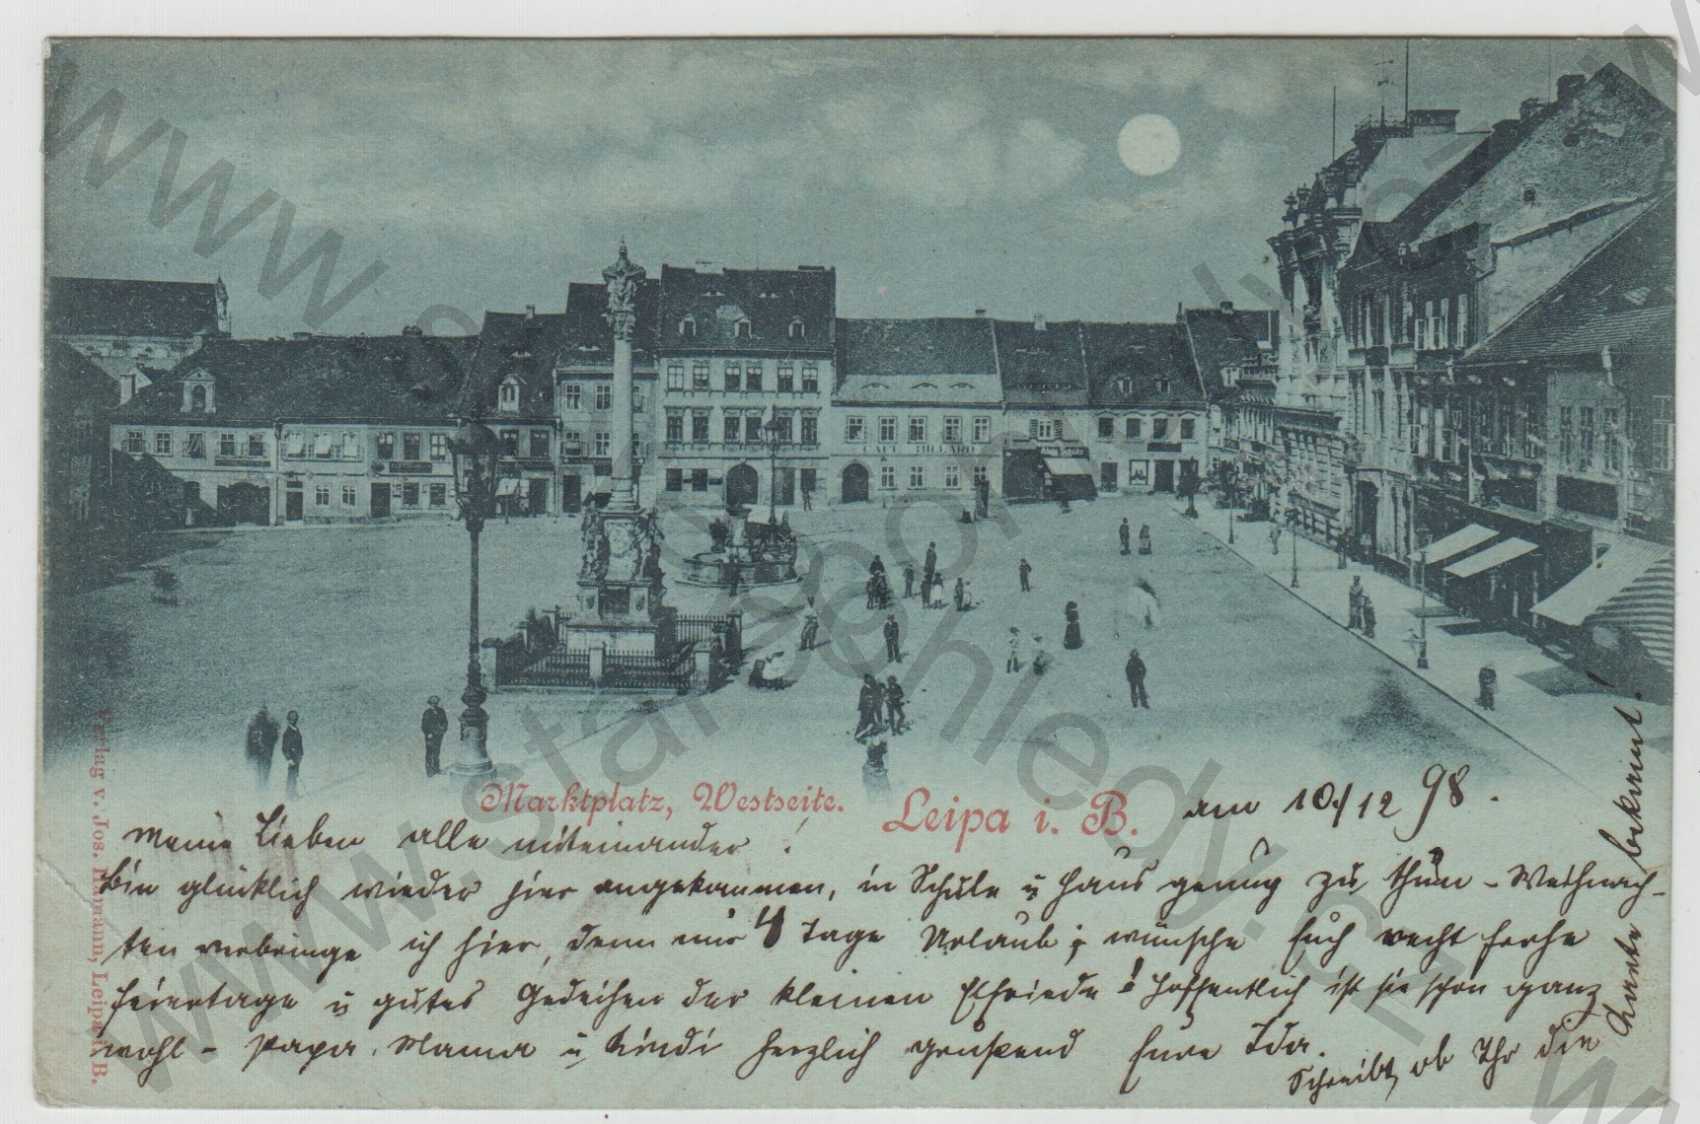 CAFE BILLARD
Marktplatz, Westseite. Leipa i. B. am 10./12 98.
Meine Lieben alle miteinander!
Bin glücklich wieder hier angekommen, in Schule u Haus genug zu thun – Weihnach-
ten verbringe ich hier, denn nur 4 Tage Urlaub; wünsche Euch recht frohe
Feiertage u gutes Gedeihen der kleinen Elfriede! Hoffentlich ist sie schon ganz
wohl – Papa, Mama u herzlich grüßend Eure Ida.
Schreibt, ob Ihr die
Karte bekamt!
Verlag v. Jos. Hamann, Leipa i. B.